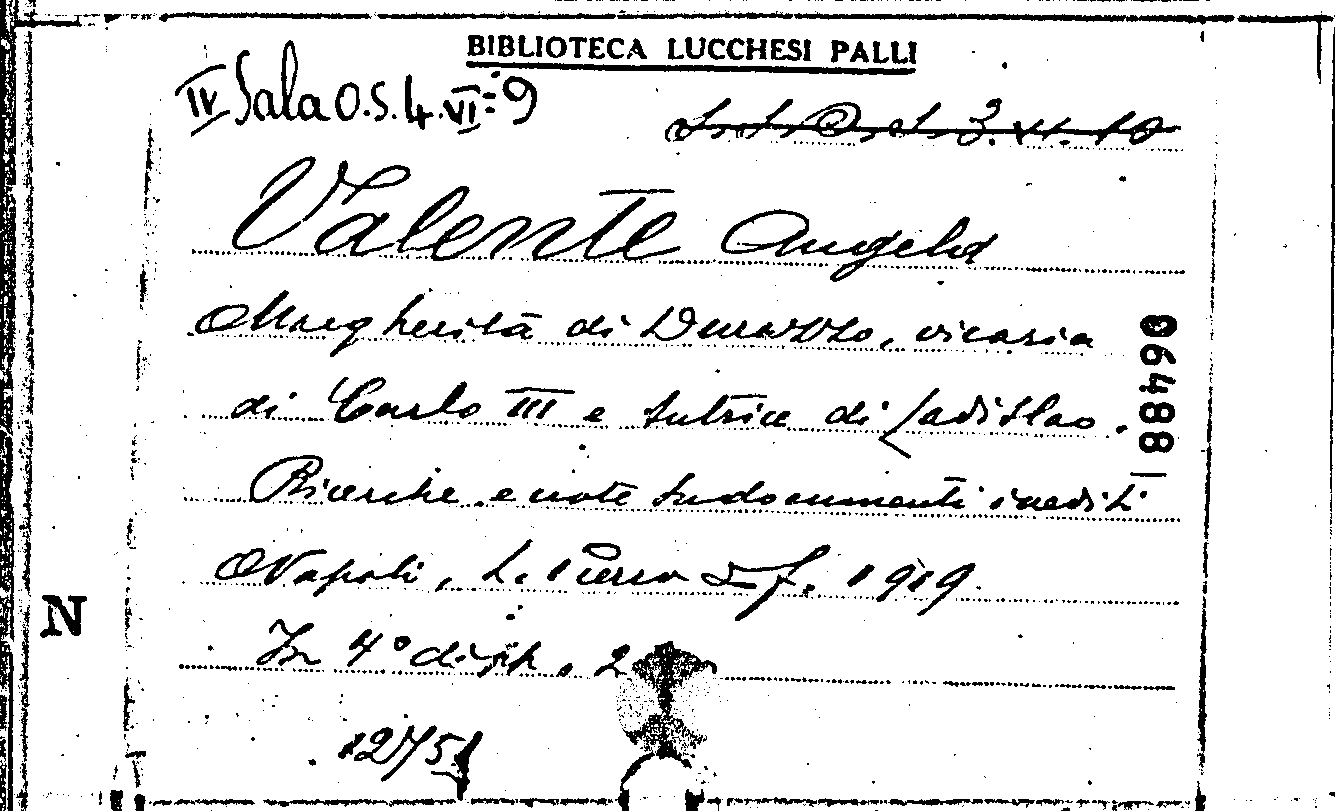 BIBLIOTECA LUCCHESI PALLI
IV Sala O.S. 4. VI: 9
3. VI. 10
Valente Angela
Margherita di Durazzo, vicaria
di Carlo III e tutrice di Ladislao.
Ricerche e note su documenti inediti
Napoli, L. Pierro e f. 1919.
In 4° di pp. 2
12751
064881
N